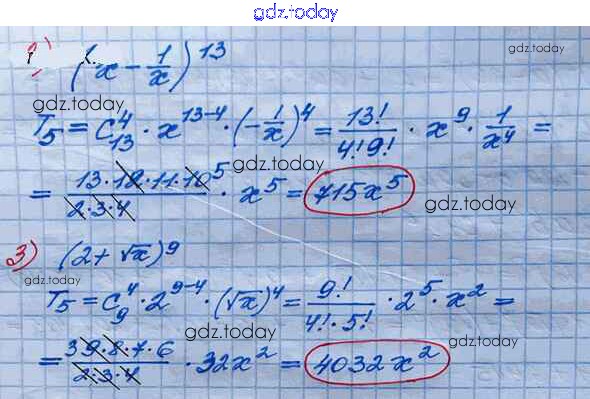 gdz.today
(x - 1/x)^13
gdz.today
gdz.today
T₅ = C₁₃⁴ · x^(13-4) · (-1/x)⁴ = 13!/(4!9!) · x⁹ · 1/x⁴ =
gdz.today
= (13·12·11·10⁵)/(2·3·4) · x⁵ = 715x⁵
gdz.today
3) (2 + √x)⁹
gdz.today
gdz.today
T₅ = C₉⁴ · 2^(9-4) · (√x)⁴ = 9!/(4!·5!) · 2⁵ · x² =
gdz.today
= (³9·8·7·6)/(2·3·4) · 32x² = 4032x²
gdz.today